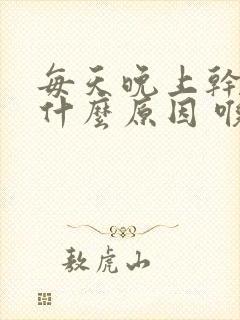 每天晚上幹
什麼原因
敖虎山